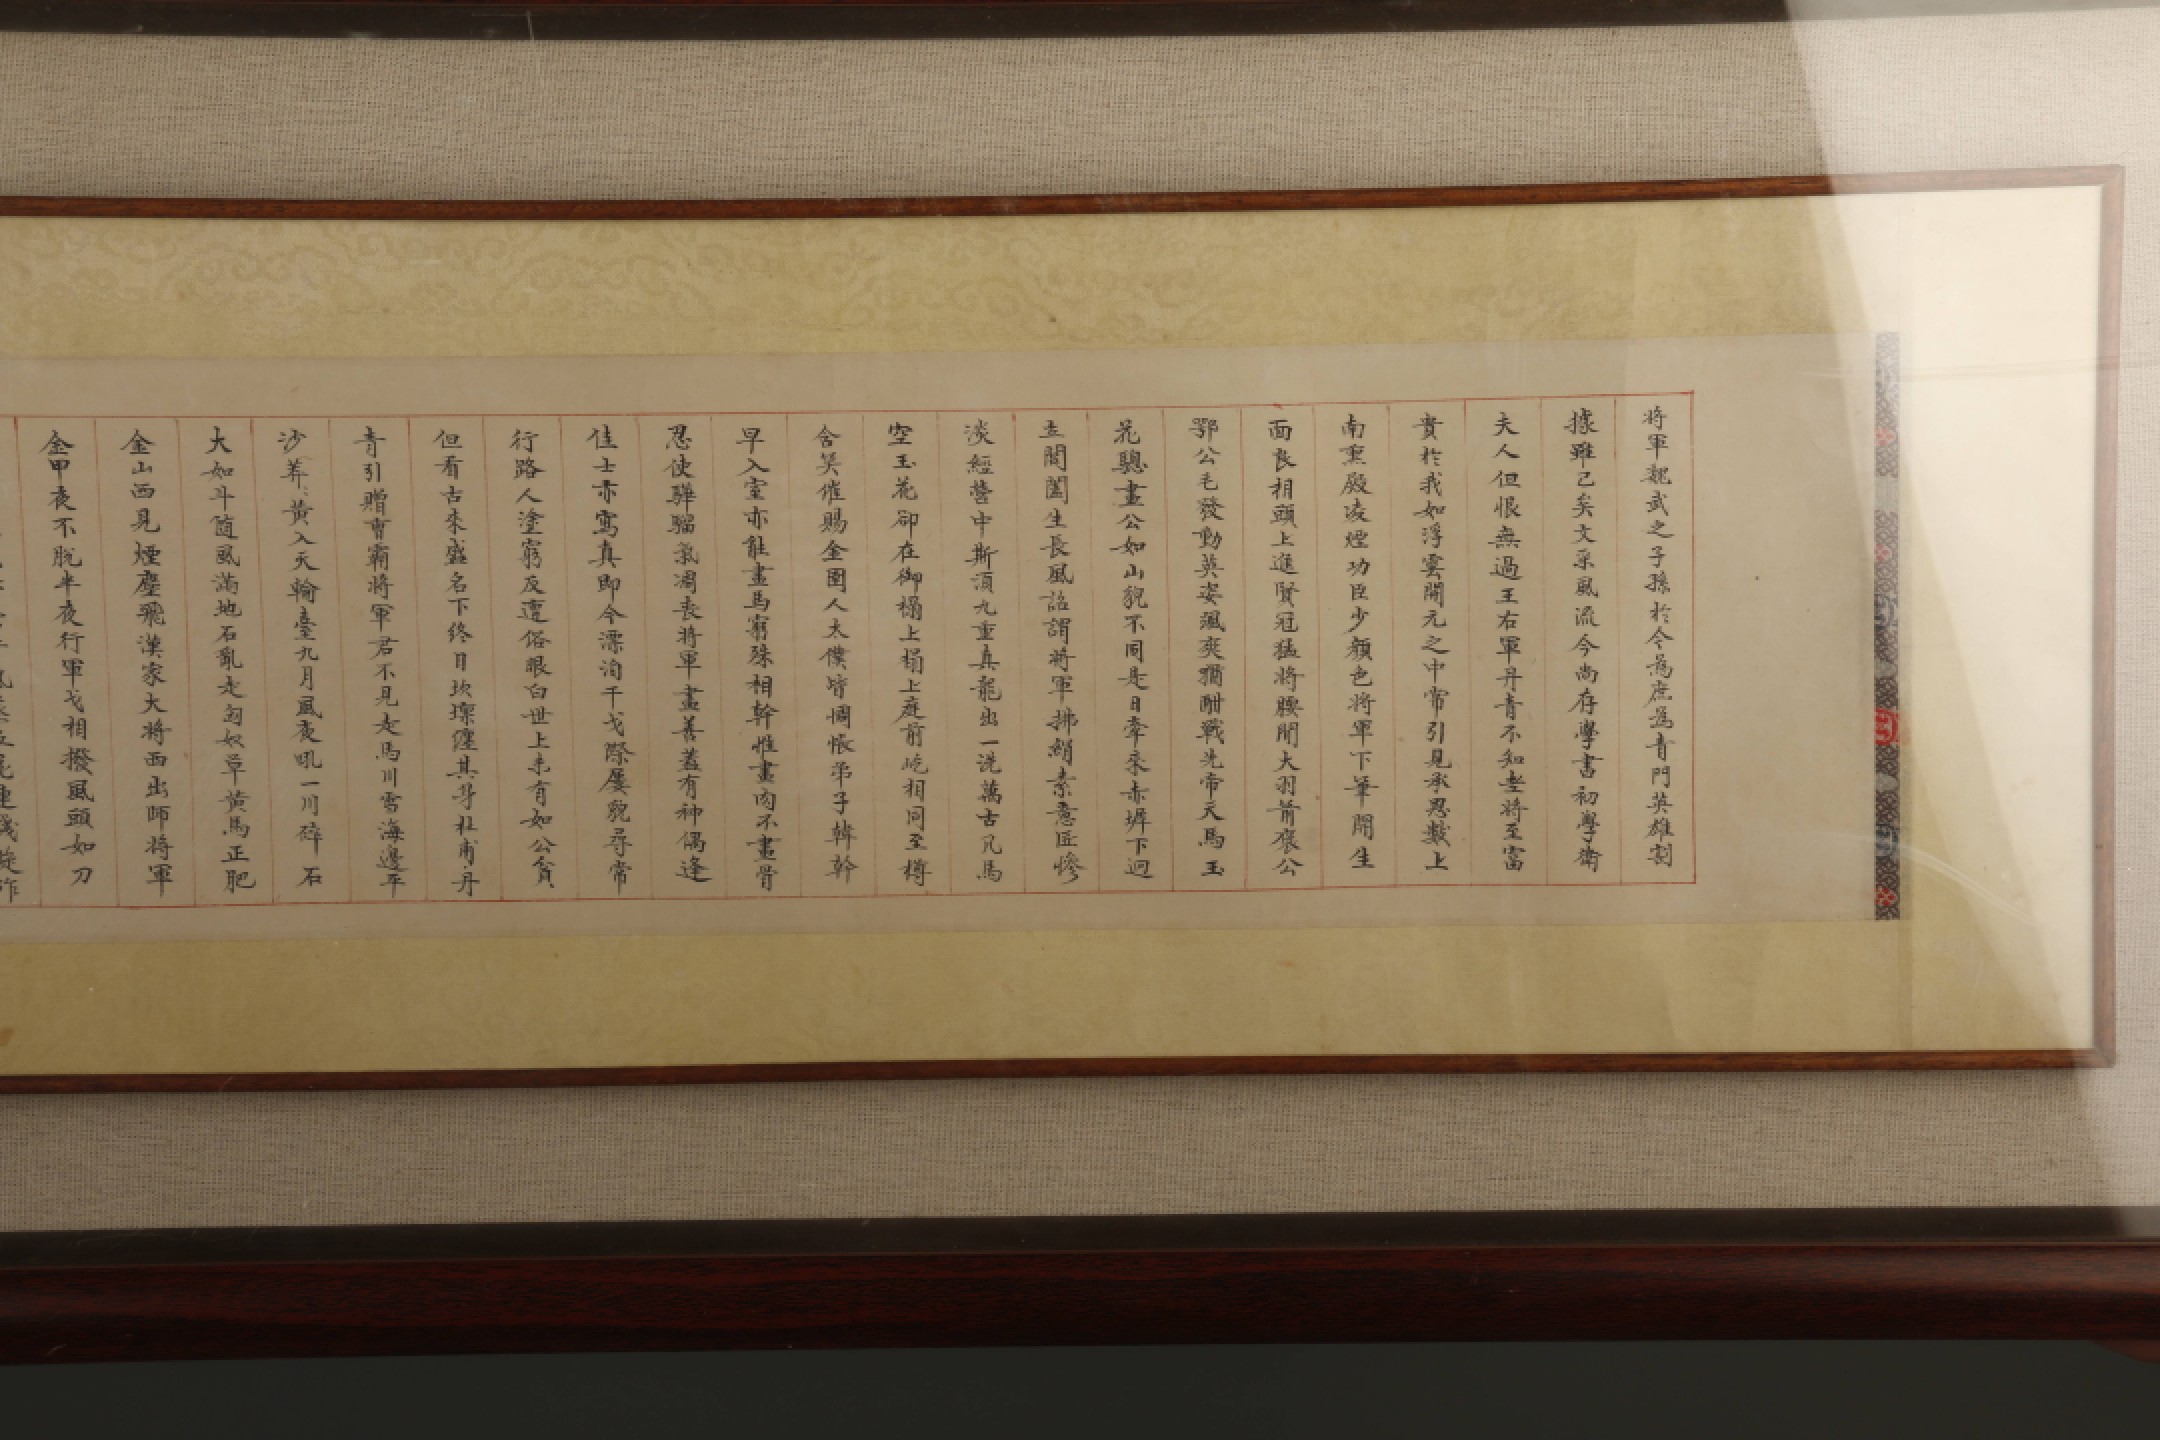 將軍魏武之子孫於今為庶為青門英雄割
據雖已矣文采風流今尚存學書初學衛
夫人但恨無過王右軍丹青不知老將至富
貴於我如浮雲開元之中常引見承恩數上
南熏殿凌煙功臣少顏色將軍下筆開生
面良相頭上進賢冠猛將腰間大羽箭褒公
鄂公毛發動英姿颯爽猶酣戰先帝天馬玉
花驄畫公如山貌不同是日牽來赤墀下迥
立閶闔生長風詔謂將軍拂絹素意匠慘
淡經營中斯須九重真龍出一洗萬古凡馬
空玉花卻在御榻上榻上庭前屹相同至樽
含笑催賜金圉人太僕皆惆悵弟子韓幹
早入室亦能畫馬窮殊相幹惟畫肉不畫骨
忍使驊騮氣凋喪將軍畫善蓋有神偶逢
佳士亦寫真即今漂泊干戈際屢貌尋常
行路人塗窮反遭俗眼白世上未有如公貧
但看古來盛名下終日坎壈纏其身杜甫丹
青引贈曹霸將軍君不見走馬川雪海邊平
沙莽黃入天輪臺九月風夜吼一川碎石
大如斗隨風滿地石亂走匈奴草黃馬正肥
金山西見煙塵飛漢家大將西出師將軍
金甲夜不脫半夜行軍戈相撥風頭如刀